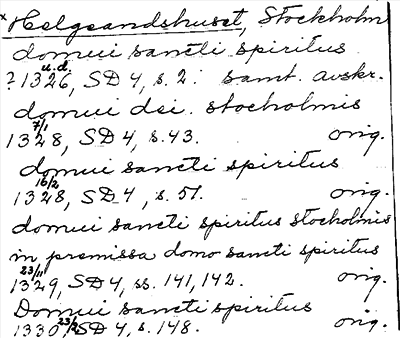 x Helgeandshuset, Stockholm
domui sancti spiritus
? 1326, u.d. SD 4, s. 2. samt. avskr.
domui dei. stocholmis
1328, 7/1 SD 4, s. 43. orig.
domui sancti spiritus
1328, 16/2 SD 4, s. 51. orig.
domui sancti spiritus stocholmis
in premissa domo sancti spiritus
1329, 23/11 SD 4, ss. 141, 142. orig.
Domui sancti spiritus
1330 23/2 SD 4, s. 148. orig.